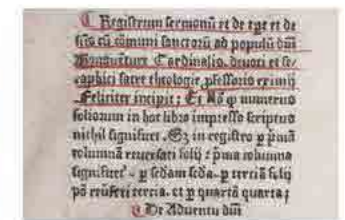 Registrum sermonū et de tpe et de
sctis cū cōmuni sanctorū ad populū dn̄i
Bonauenture Cardinalis. deuoti et se-
raphici sacre theologie ꝓfessoris eximij
Feliciter incipit; Et Nō ꝙ numerus
foliorum in hoc libro impresso scriptus
nichil significet. Sꝫ in registro ꝑ pͥmā
columnā reuersati folij: pͥma columna
significet'. ꝑ sc̄dam sc̄da. ꝑ terciā folij
ꝑ quartā quarta;
De Aduentu dn̄i